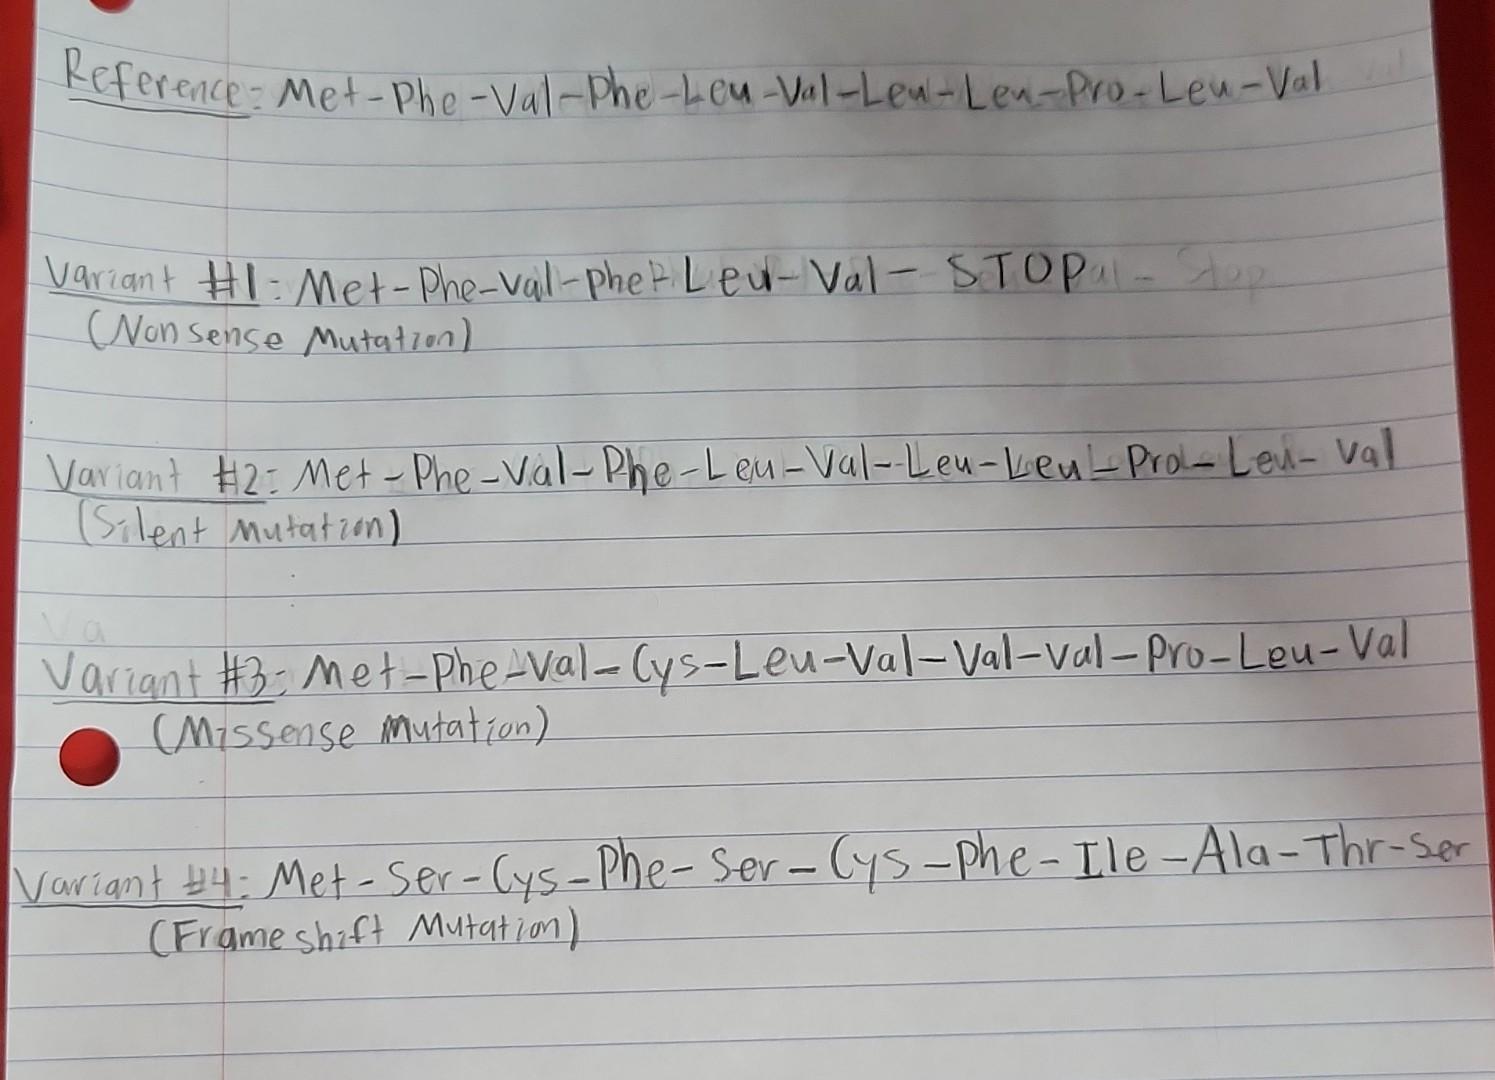 Reference: Met-Phe-Val-Phe-Leu-Val-Leu-Leu-Pro-Leu-Val
Variant #1: Met-Phe-Val-Phe-Leu-Val-STOP
(Nonsense Mutation)
Variant #2: Met-Phe-Val-Phe-Leu-Val-Leu-Leu-Pro-Leu-Val
(Silent Mutation)
Variant #3: Met-Phe-Val-Cys-Leu-Val-Val-Val-Pro-Leu-Val
(Missense Mutation)
Variant #4: Met-Ser-Cys-Phe-Ser-Cys-Phe-Ile-Ala-Thr-Ser
(Frameshift Mutation)